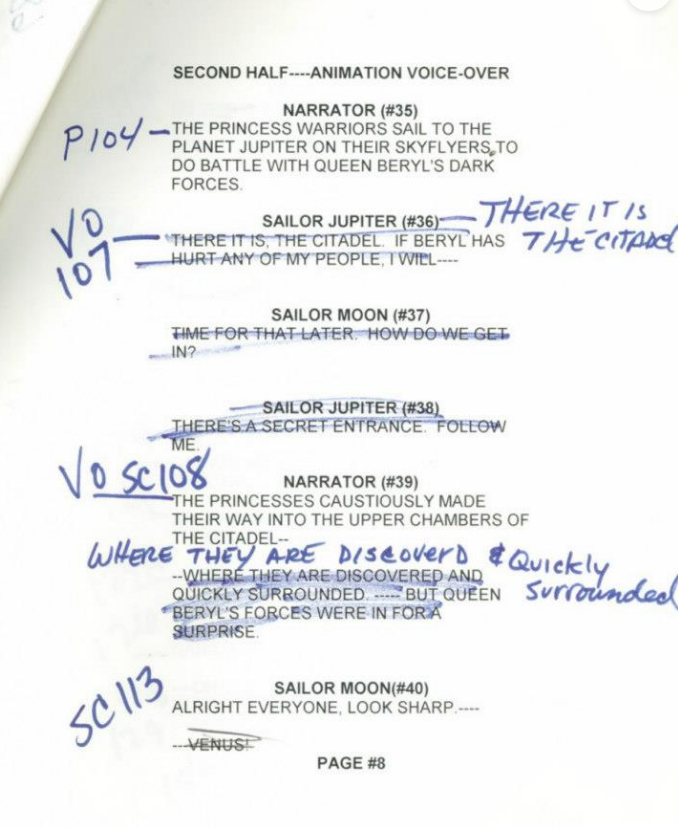 SECOND HALF----ANIMATION VOICE-OVER
NARRATOR (#35)
P104 — THE PRINCESS WARRIORS SAIL TO THE
PLANET JUPITER ON THEIR SKYFLYERS, TO
DO BATTLE WITH QUEEN BERYL'S DARK
FORCES.
SAILOR JUPITER (#36) — THERE IT IS
THE CITADEL
VO
107
THERE IT IS, THE CITADEL. IF BERYL HAS
HURT ANY OF MY PEOPLE, I WILL----
SAILOR MOON (#37)
TIME FOR THAT LATER. HOW DO WE GET
IN?
SAILOR JUPITER (#38)
THERE'S A SECRET ENTRANCE. FOLLOW
ME.
VO SC108
NARRATOR (#39)
THE PRINCESSES CAUSTIOUSLY MADE
THEIR WAY INTO THE UPPER CHAMBERS OF
THE CITADEL--
WHERE THEY ARE DISCOVERD & Quickly
Surrounded
--WHERE THEY ARE DISCOVERED AND
QUICKLY SURROUNDED. ----- BUT QUEEN
BERYL'S FORCES WERE IN FOR A
SURPRISE.
SC 113
SAILOR MOON(#40)
ALRIGHT EVERYONE, LOOK SHARP.----
---VENUS!
PAGE #8